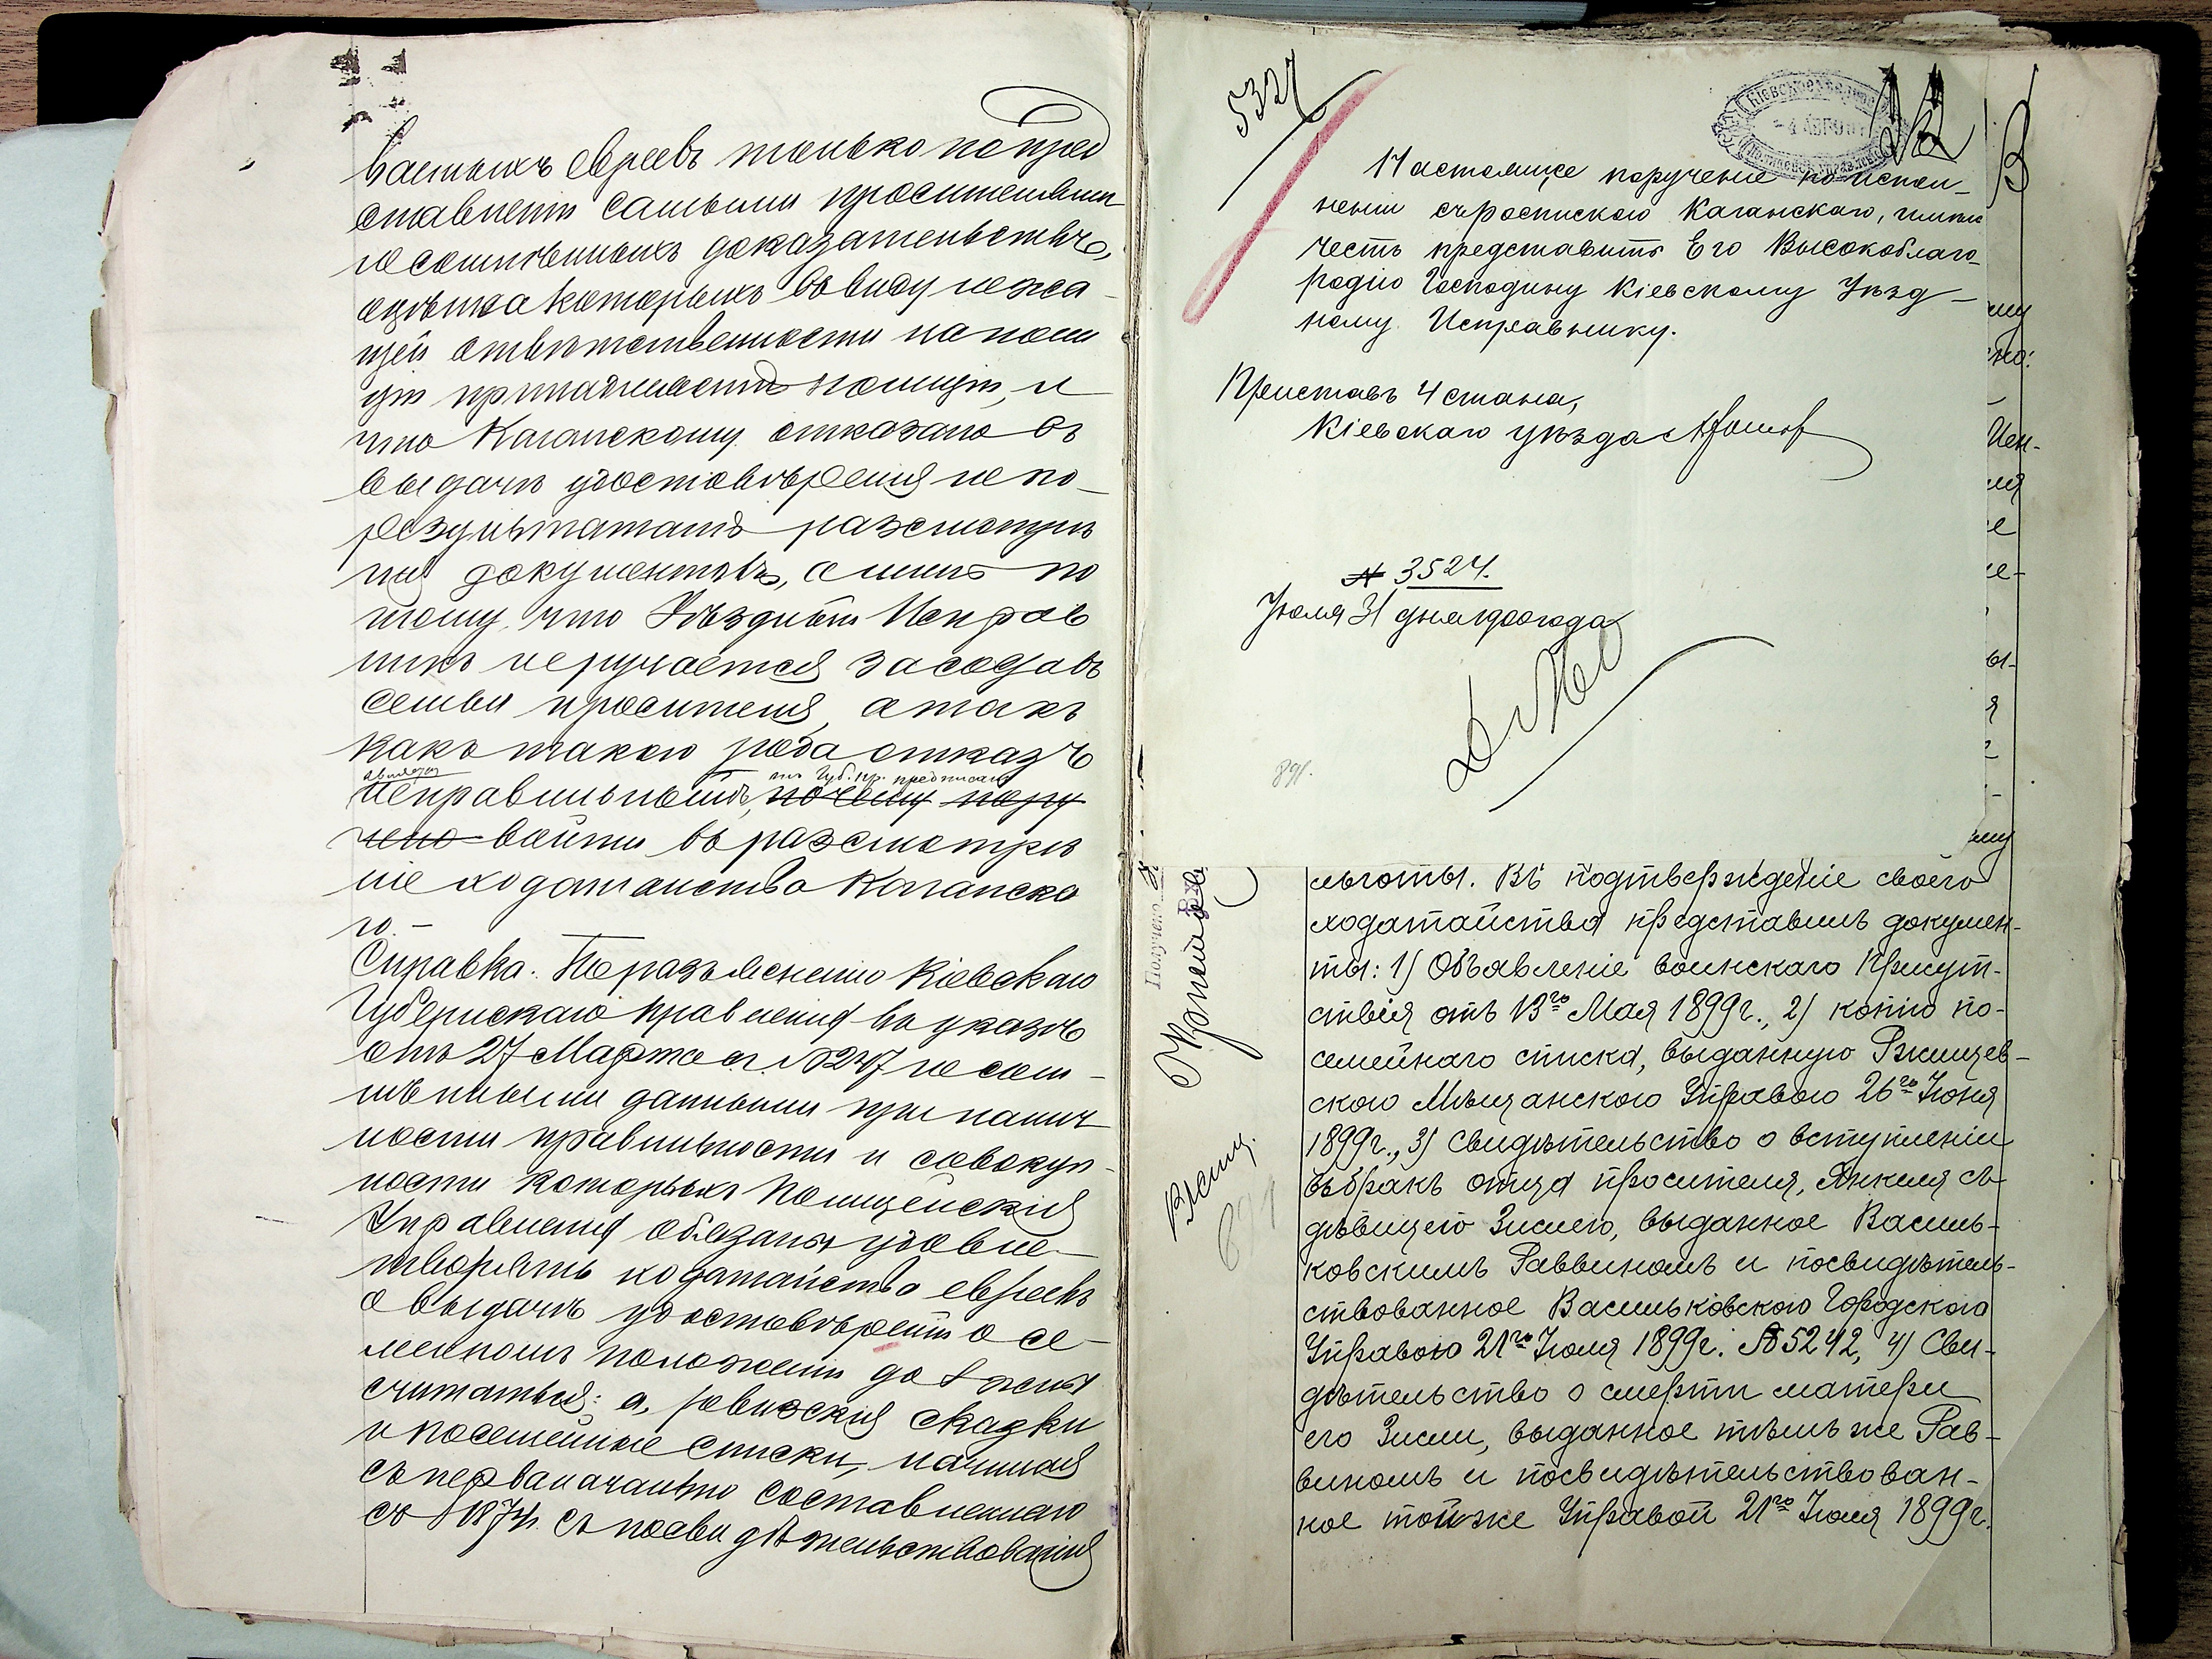 ваемыхъ евреевъ только по пред
ставленіи самыми просителями
несомнѣнныхъ доказательствъ,
оцѣнка которыхъ въ виду лежа
щей отвѣтственности на поли
ціи принадлежитъ полиціи, и
что Каганскому отказано въ
выдачѣ удостовѣренія не по
результатамъ разсмотрѣ
нія документовъ, а лишь по
тому, что Уѣздный Исправ
никъ не ручается за составъ
семьи просителя, а такъ
какъ такого рода отказъ
Губ. пр. предписало
неправильнымъ, почему пору
чено войти въ разсмотрѣ
ніе ходатайства Каганска
го.–
Справка. По разъясненію Кіевскаго
Губернскаго Правленія въ указѣ
отъ 27 Марта с.г. № 247 несом-
нѣнными данными при налич
ности правильности и совокуп-
ности которыхъ Полицейскія
Управленія обязаны удовле-
творять ходатайства евреевъ
о выдачѣ удостовѣреній о се-
мейномъ положеніи должны
считаться: а, ревизскія сказки
и посемейные списки, начиная
съ первоначально составленнаго
съ 1874. съ посвидѣтельствованія
5327
- 4 АВГ
Настоящее порученіе по испол-
неніи съ роспискою Каганскаго, имѣю
честь представить Его Высокоблаго-
родію Господину Кіевскому Уѣзд-
ному Исправнику.
Приставъ 4 стана,
Кіевскаго уѣзда
№ 3524.
Іюля 31 дня 1900 года
891.
Получено
льготы. Въ подтвержденіе своего
ходатайства представилъ докумен-
ты: 1) Объявленіе воинскаго Присут-
ствія отъ 13го Мая 1899г., 2) копію по-
семейнаго списка, выданную Ржищев-
скою Мѣщанскою Управою 26го Іюня
1899г., 3) Свидѣтельство о вступленіи
въ бракъ отца просителя, Янкеля съ
дѣвицею Зислею, выданное Василь-
ковскимъ Раввиномъ и посвидѣтель-
ствованное Васильковскою Городскою
Управою 21го Іюля 1899г. № 5242, 4) Сви-
дѣтельство о смерти матери
его Зисли, выданное тѣмъ же Рав-
виномъ и посвидѣтельствован-
ное той же Управой 21го Іюля 1899г.